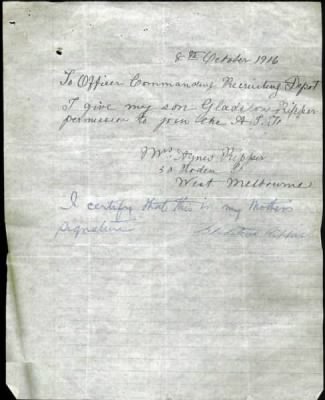 8th October 1916
To Officer Commanding Recruiting Depot
I give my son Gladston Ripper
permission to join the A.I.F.
Mrs Agnes Ripper
50 Roden St
West Melbourne
I certify that this is my Mothers
signature Ripper